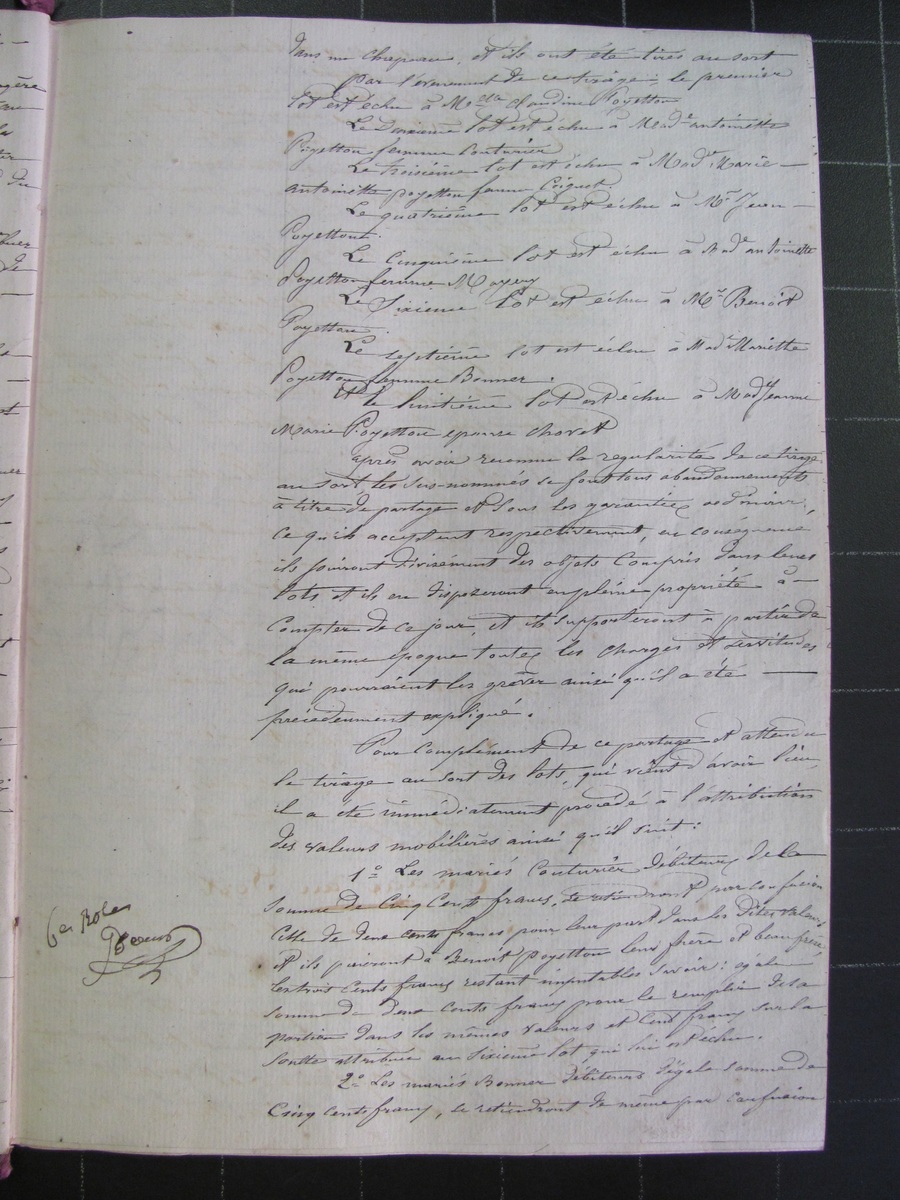 dans un chapeau, et ils ont été tirés au sort
Par l'évènement de ce tirage : le premier
lot est échu à Melle Claudine Poyetton
Le Deuxième lot est échu à Made antoinette
Poyetton femme Couturier
Le troisième lot est échu à Made Marie —
antoinette poyetton femme Coignet.
Le quatrième lot est échu à Mr Jean —
Poyetton.
Le Cinquième lot est échu à Made antoinette
Poyetton femme Mayeux
Le Sixieme lot est échu à Mr Benoît
Poyetton.
Le septième lot est échu à Made Mariette
Poyetton femme Bonner.
Et le huitième lot est échu à Made Jeanne
Marie Poyetton epouse Chovet
après avoir reconnu la régularité de ce tirage
au sort, les sus-nommés se font tous abandonnements
à titre de partage et sous les garanties ordinaires,
ce qu'ils acceptent respectivement, en conséquence
ils jouiront divisément des objets compris dans leurs
lots et ils en disposeront en pleine propriété à —
Compter de ce jour, et ils supporteront à partir de
la même époque toutes les charges et servitudes
qui pourraient les grever ainsi qu'il a été —
précédemment expliqué.
Pour complément de ce partage et attendu
le tirage au sort des lots, qui vient d'avoir lieu,
il a été immédiatement procédé à l'attribution
des valeurs mobilières ainsi qu'il suit :
1o Les mariés Couturier débiteurs de la
somme de Cinq Cents francs, se retiendront par confusion
Celle de deux cents francs pour leur part dans les dites valeurs
et ils paieront à Benoît Poyetton leur frère et beau frère,
les trois cents francs restant imputables savoir :
somme de deux cents francs pour le remplir de sa
portion dans les mêmes valeurs et Cent francs sur la
soulte attribuée au sixième lot qui lui est échu.
2o Les mariés Bonner débiteurs d'égale somme de
Cinq cents francs, se retiendront de même par confusion
6e Role